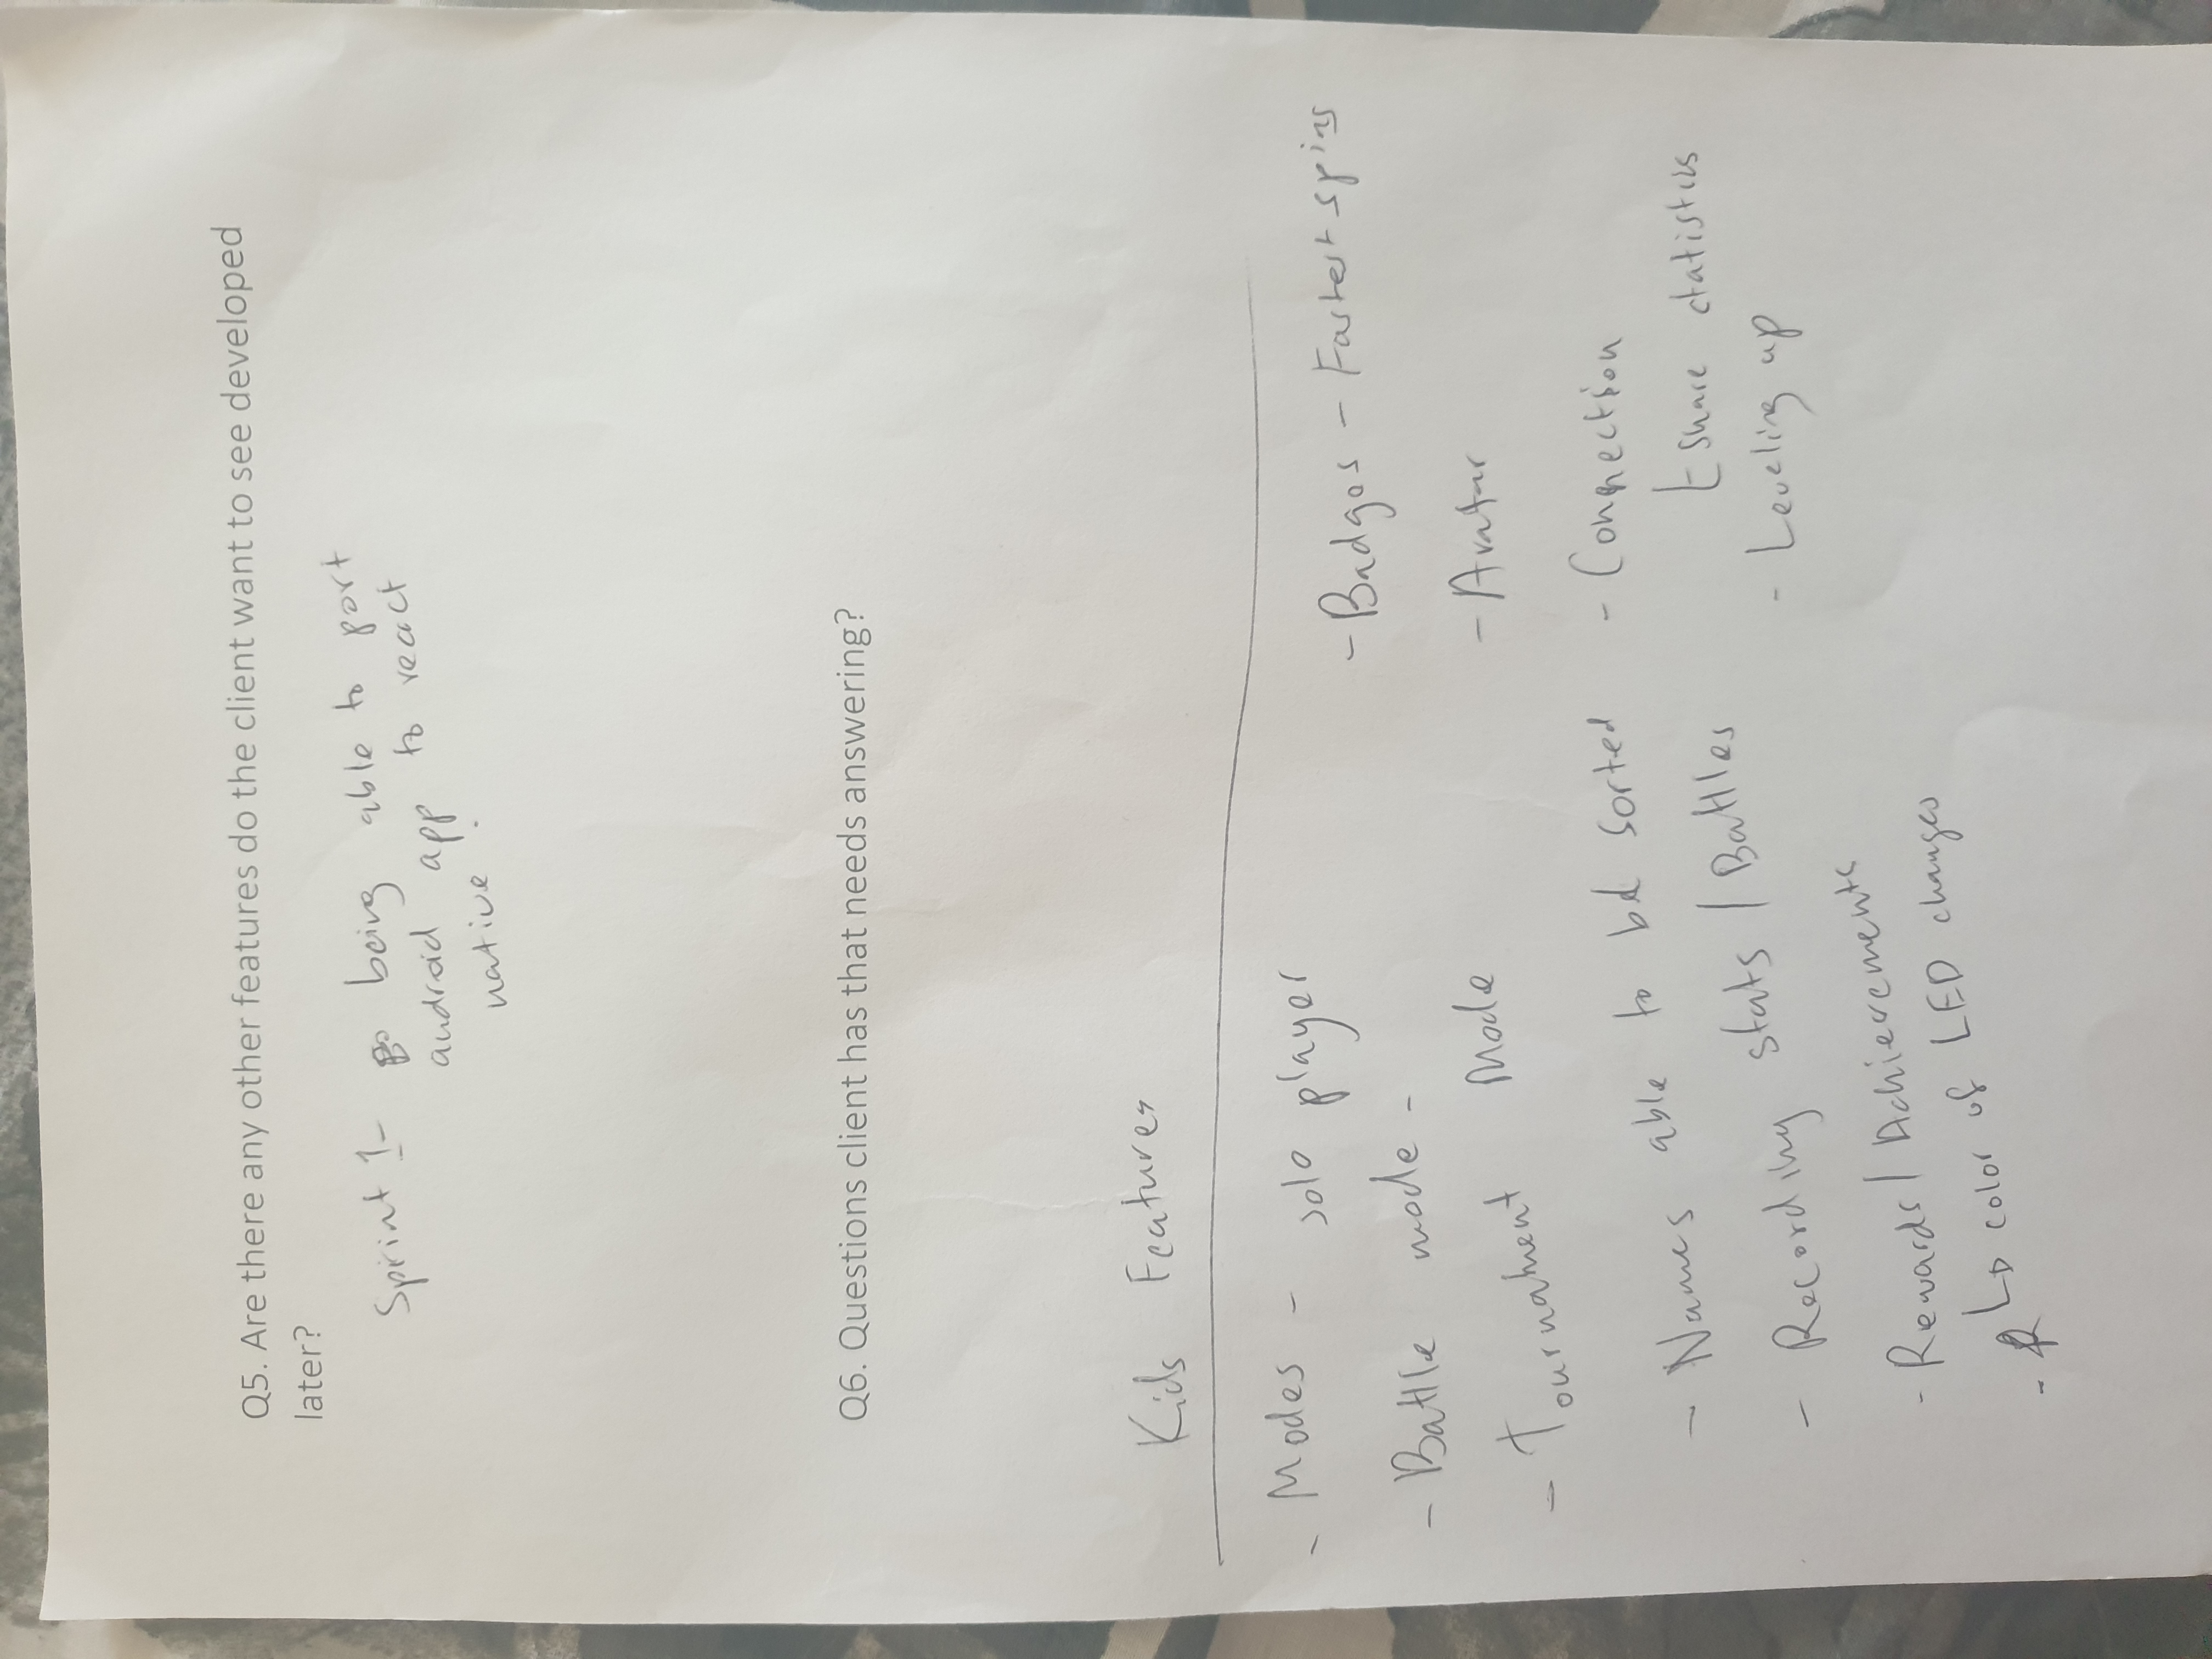 Q5. Are there any other features do the client want to see developed
later?
Sprint 1- being able to port
android app to react
native.
Q6. Questions client has that needs answering?
Kids Features
- Modes - solo player
- Battle mode -
- Tournament Mode
- Names able to be sorted
- Recording stats / Battles
- Rewards / Achievements
color of LED changes
-
- Badges - Fastest spins
- Avatar
- Connection
share statistics
- Leveling up